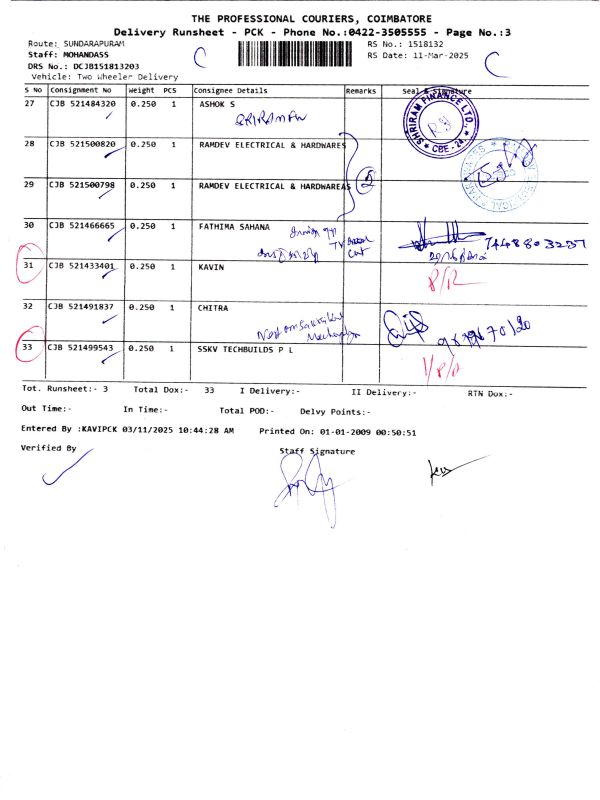 THE PROFESSIONAL COURIERS, COIMBATORE
Delivery Runsheet - PCK - Phone No.:0422-3505555 - Page No.:3
Route: SUNDARAPURAM
RS No.: 1518132
Staff: MOHANDASS
C
RS Date: 11-Mar-2025
C
DRS No.: DCJB151813203
Vehicle: Two Wheeler Delivery
S No Consignment No Weight PCS Consignee Details Remarks Seal & Signature
27 CJB 521484320 0.250 1 ASHOK S
SHRIRAM FINANCE LTD.
* CBE - 24 *
28 CJB 521500820 0.250 1 RAMDEV ELECTRICAL & HARDWARES
29 CJB 521500798 0.250 1 RAMDEV ELECTRICAL & HARDWAREAS
2
30 CJB 521466665 0.250 1 FATHIMA SAHANA
31 CJB 521433401 0.250 1 KAVIN
P/R
32 CJB 521491837 0.250 1 CHITRA
33 CJB 521499543 0.250 1 SSKV TECHBUILDS P L
Tot. Runsheet:- 3 Total Dox:- 33 I Delivery:- II Delivery:- RTN Dox:-
Out Time:- In Time:- Total POD:- Delvy Points:-
Entered By :KAVIPCK 03/11/2025 10:44:28 AM Printed On: 01-01-2009 00:50:51
Verified By
Staff Signature